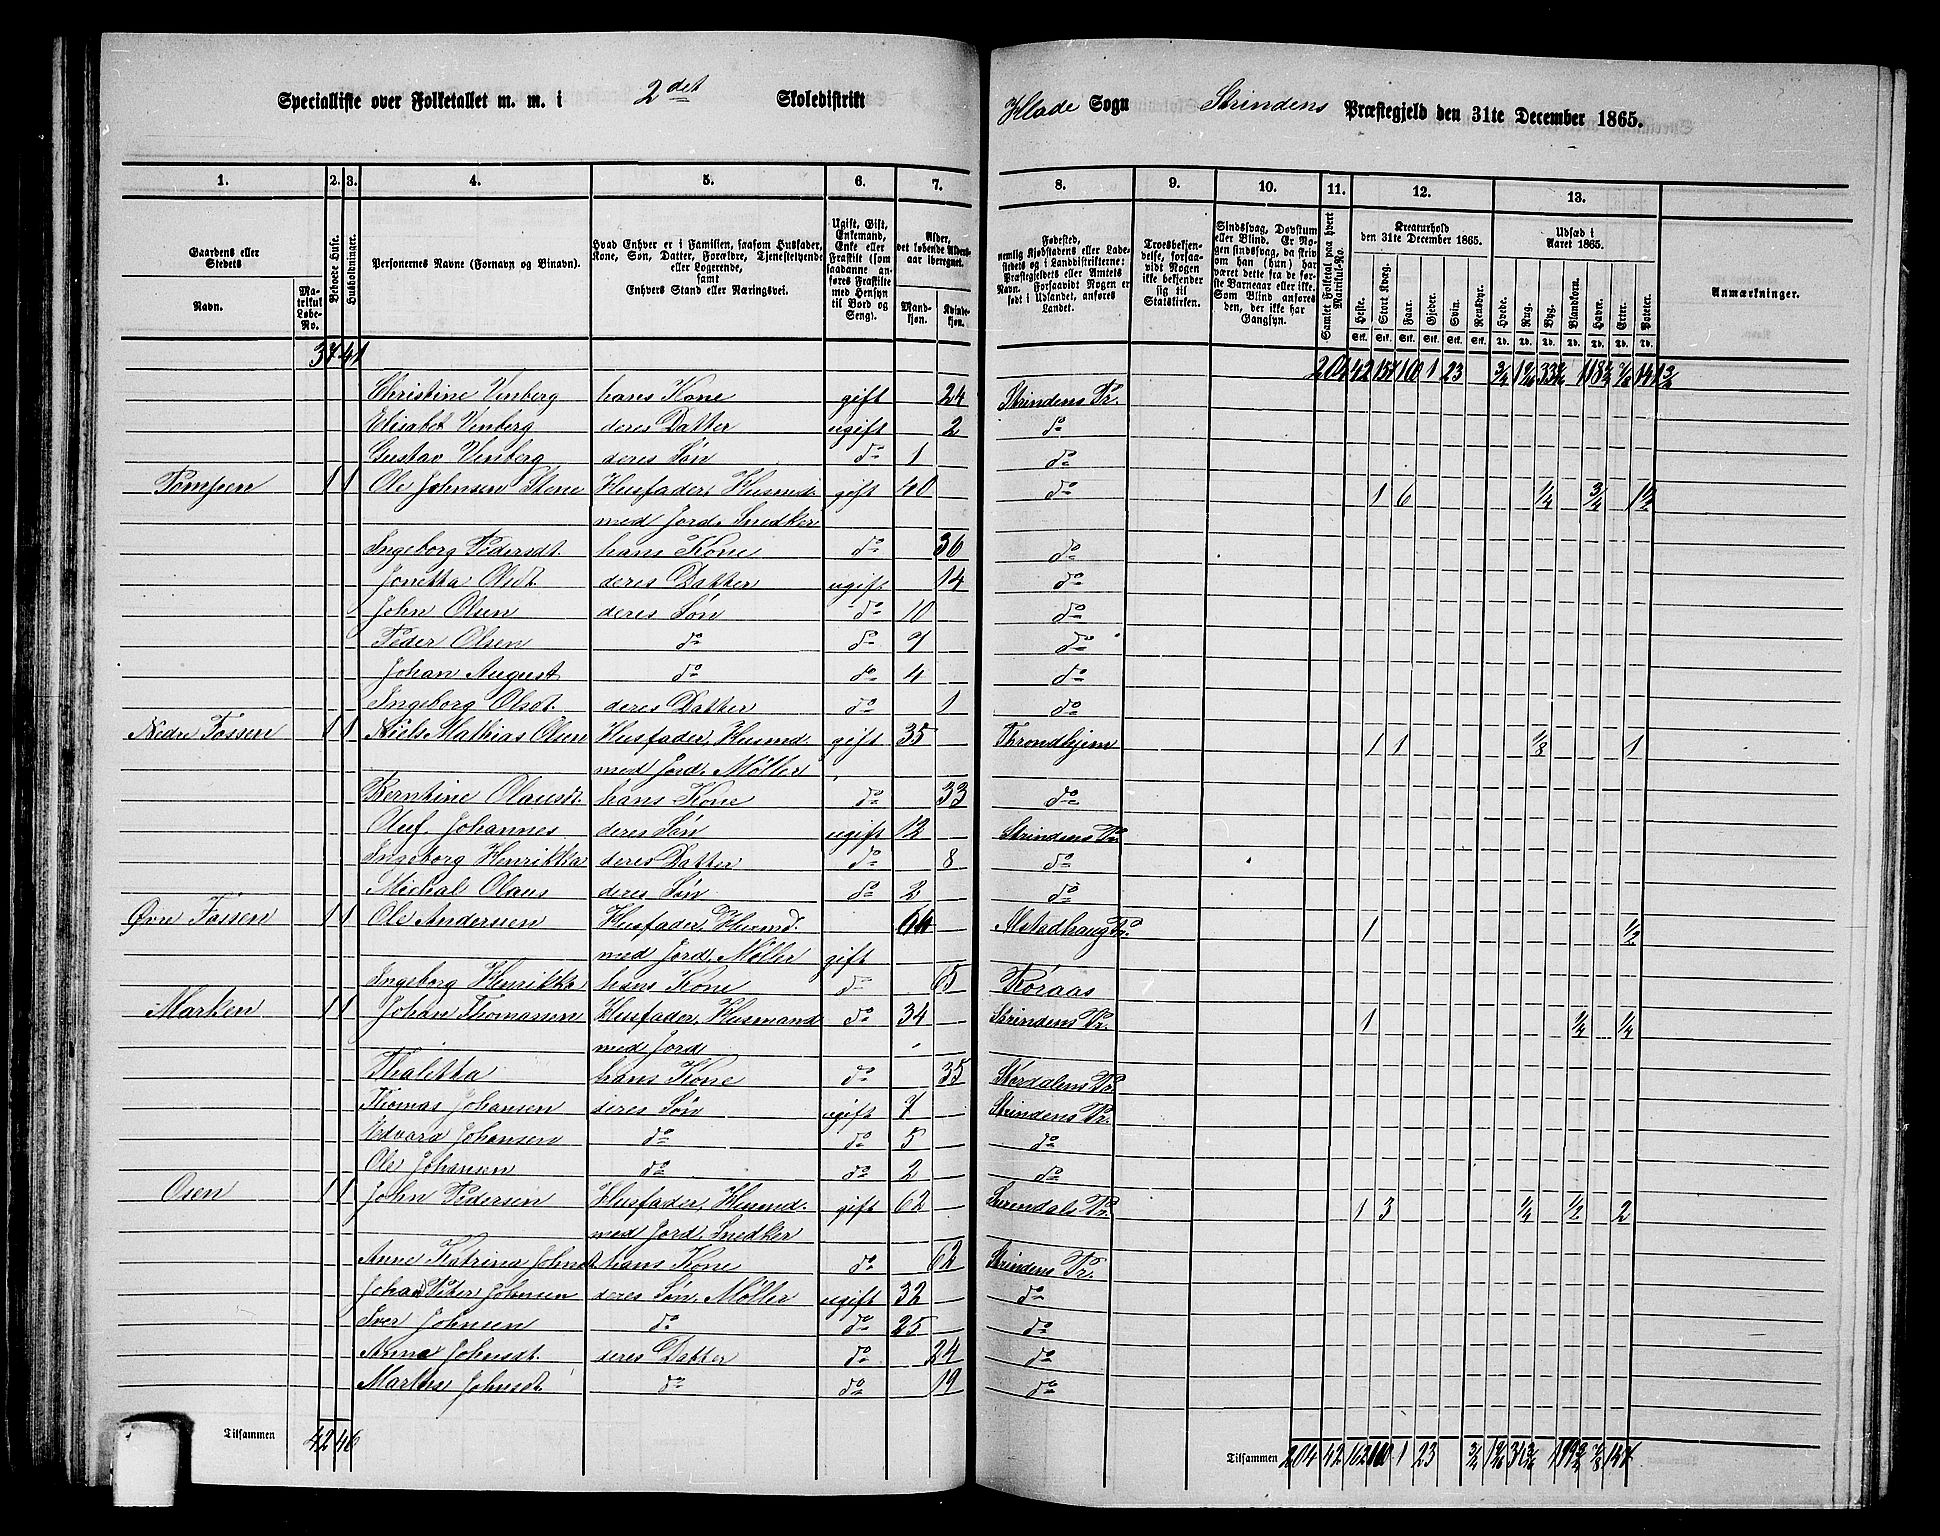 Specialliste over Folketallet m. m. i 2det Skoledistrikt Hlade Sogn Strindens Præstegjeld den 31te December 1865.
1. 2. 3. 4. 5. 6. 7. 8. 9. 10. 11. 12. 13.
Gaardens eller Stedets
Navn.
Matrikul Løbe-No.
Beboede Huse.
Husholdninger.
Personernes Navne (Fornavn og Binavn).
Hvad Enhver er i Familien, saasom Husfader, Kone, Søn, Datter, Forældre, Tjenestetyende eller Logerende, samt Enhvers Stand eller Næringsvei.
Ugift, Gift, Enkemand, Enke eller Fraskilt (som saadanne anføres Fraskilte med Hensyn til Bord og Seng).
Alder, det løbende Aldersaar iberegnet.
Mandkjøn. Kvindekjøn.
Fødested, nemlig Kjøbstadens eller Ladestedets og i Landdistrikterne: Præstegjeldets eller Amtets Navn. Forsaavidt Nogen er født i Udlandet, anføres Landet.
Troesbekjendelse, forsaavidt Nogen ikke bekjender sig til Statskirken.
Sindssvag, Døvstum eller Blind. Er Nogen sindssvag, da skrives om han (hun) har været dette fra de første Barneaar eller ikke. Som Blind anføres den, der ikke har Gangsyn.
Samlet Folketal paa hvert Matrikul-No.
Kreaturhold den 31te December 1865.
Heste. Stort Kvæg. Faar. Gjeder. Svin. Rensdyr.
Udsæd i Aaret 1865.
Hvede. Rug. Byg. Blandkorn. Havre. Erter. Poteter.
Anmærkninger.
37 41 204 42 157 1 23 3/4
Christine Vinberg hans Kone gift 24 Strindens Pr.
Elisabet Vinberg deres Datter ugift 2 do
Gustav Vinberg deres Søn do 1 do
Tømperen 1 1 Ole Johnsen Stene Husfader, Husmd. gift 40 do 1 6 1/4 3/4 1 1/2
med Jord, Snedker
Ingeborg Pedersdt. hans Kone do 36 do
Jonetta Olsdt. deres Datter ugift 14 do
John Olsen deres Søn do 10 do
Peder Olsen do do 7 do
Johan August do do 4 do
Ingeborg Olsdt. deres Datter do 1 do
Nedre Fossen 1 1 Niels Mathias Olsen Husfader, Husmd. gift 35 Throndhjem 1 1 1/8 1
med Jord, Møller
Berntine Olausdt. hans Kone do 33 do
Oluf Johannes deres Søn ugift 12 Strindens Pr.
Ingeborg Henrikka deres Datter do 8 do
Michal Olaus deres Søn do 2 do
Øvre Fossen 1 1 Ole Andersen Husfader, Husmd. Alstadhaug Pr. 1 1/2
med Jord, Møller gift
Ingeborg Henrikka hans Kone do 65 Røraas
Marken 1 1 Johan Thomassen Husfader, Husmand do 34 Strindens Pr. 1 1/4 1/4
med Jord
Thaletta hans Kone do 35 Størdalens Pr.
Thomas Johansen deres Søn ugift 7 Strindens Pr.
Edvard Johansen do do 5 do
Ole Johansen do do 2 do
Osen 1 1 John Pedersen Husfader, Husmd. gift 62 Surendals Pr. 1 3 1/4 1/2 2
med Jord, Snedker
Anne Katrina Johnsdt. hans Kone do 62 Strindens Pr.
Johan Peter Johnsen deres Søn, Møller ugift 32 do
Iver Johnsen do do 25 do
Anna Johnsdt. deres Datter do 24 do
Marthe Johnsdt. do do 19 do
Tilsammen 42 46 Tilsammen 204 42 162 1 23 3/4